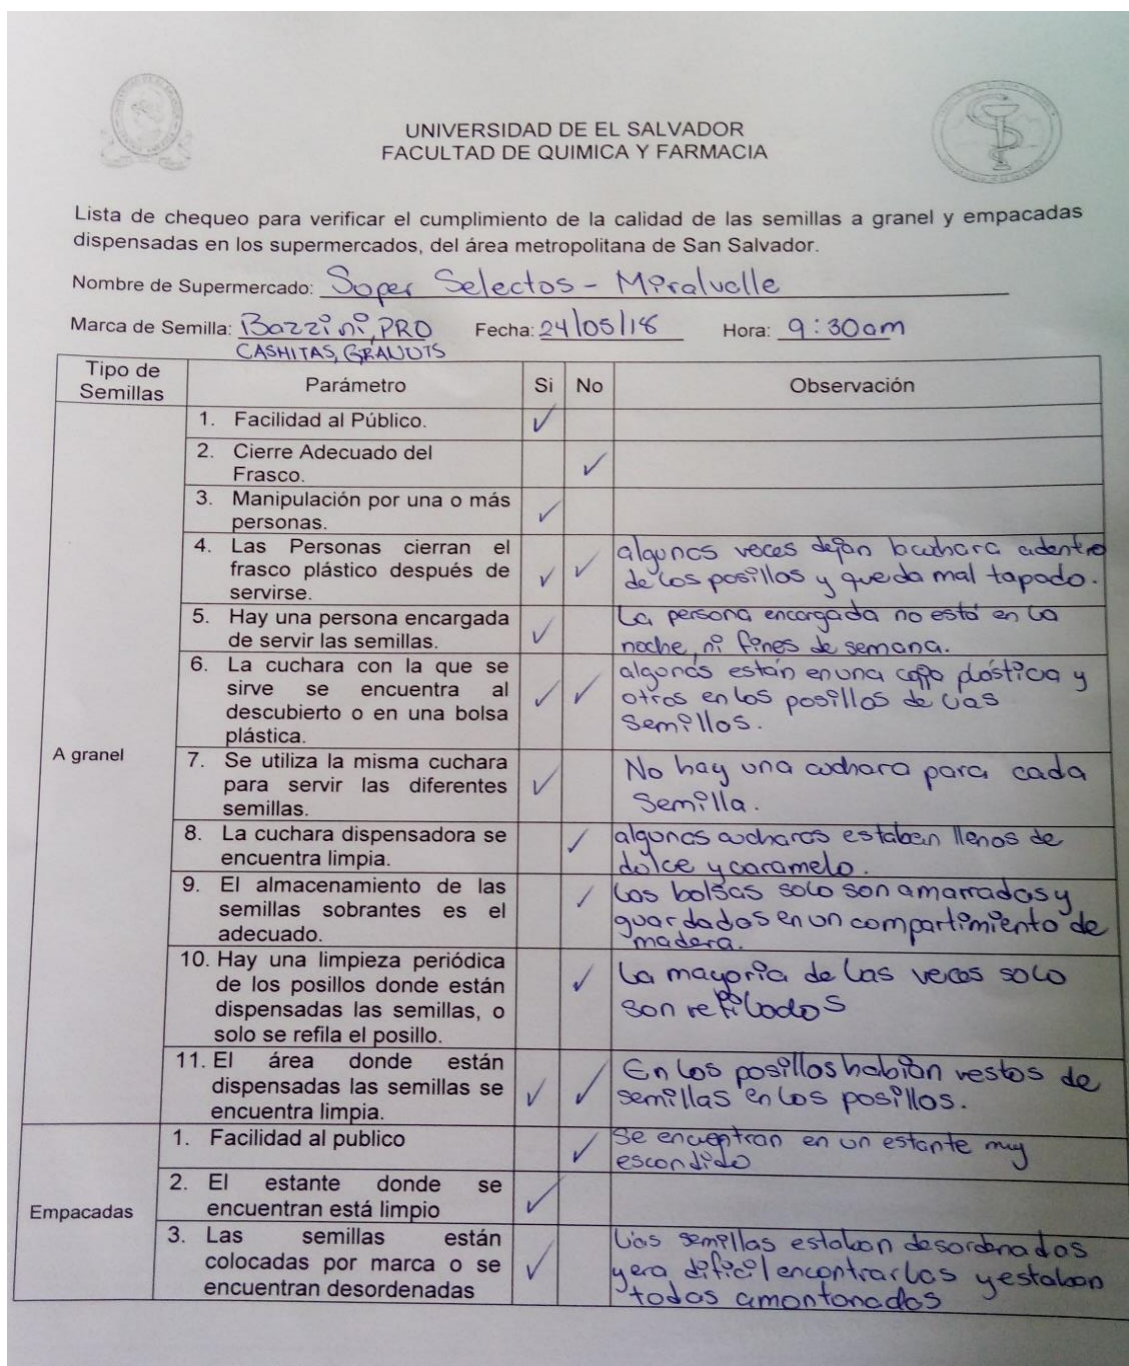 UNIVERSIDAD DE EL SALVADOR
FACULTAD DE QUIMICA Y FARMACIA
Lista de chequeo para verificar el cumplimiento de la calidad de las semillas a granel y empacadas
dispensadas en los supermercados, del área metropolitana de San Salvador.
Nombre de Supermercado: Super Selectos - Miralvalle
Marca de Semilla: Bazzini, PRO Fecha: 24/05/18 Hora: 9:30am
CASHITAS, GRANUTS
Tipo de
Semillas
Parámetro Si No Observación
A granel
1. Facilidad al Público. ✓
2. Cierre Adecuado del
Frasco. ✓
3. Manipulación por una o más
personas. ✓
4. Las Personas cierran el
frasco plástico después de
servirse. ✓ ✓
algunas veces dejan la cuchara adentro
de los posillos y queda mal tapado.
5. Hay una persona encargada
de servir las semillas. ✓
La persona encargada no está en la
noche, ni fines de semana.
6. La cuchara con la que se
sirve se encuentra al
descubierto o en una bolsa
plástica. ✓ ✓
algunas están en una copa plástica y
otros en los posillos de las
semillas.
7. Se utiliza la misma cuchara
para servir las diferentes
semillas. ✓
No hay una cuchara para cada
semilla.
8. La cuchara dispensadora se
encuentra limpia. ✓
algunas cucharas estaban llenas de
dulce y caramelo.
9. El almacenamiento de las
semillas sobrantes es el
adecuado. ✓
Las bolsas solo son amarradas y
guardadas en un compartimiento de
madera.
10. Hay una limpieza periódica
de los posillos donde están
dispensadas las semillas, o
solo se refila el posillo. ✓
La mayoria de las veces solo
son refilados
11. El área donde están
dispensadas las semillas se
encuentra limpia. ✓ ✓
En los posillos habian restos de
semillas en los posillos.
Empacadas
1. Facilidad al publico ✓
Se encuentran en un estante muy
escondido
2. El estante donde se
encuentran está limpio ✓
3. Las semillas están
colocadas por marca o se
encuentran desordenadas ✓
Las semillas estaban desordenadas
y era dificil encontrarlas y estaban
todas amontonadas